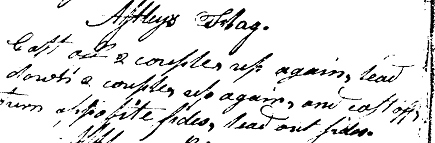 Astleys Flag.
Cast off 2 couples, up again, lead
down 2 couples up again, and cast off,
turn opposite sides, lead out sides.